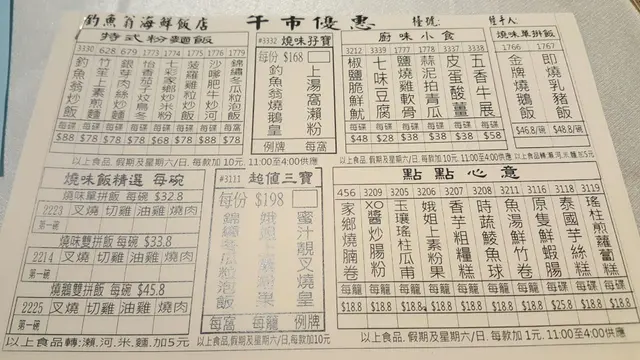 釣魚翁海鮮飯店
干市優惠
檯號:
特式粉麵飯
3330 628 679 1773 1775 1774 1776 1779
釣魚翁炒飯
竹笙上素煎麵
銀芽肉絲炒麵
怡香茄子炆烏冬
七彩家鄉炒米粉
菠蘿雞粒炒飯
沙嗲肥牛炒河
錦繡冬瓜粒泡飯
每碟 每碟 每碟 每碟 每碟 每碟 每碟 每窩
$88 $78 $78 $78 $78 $78 $78 $78
以上食品, 假期及星期六/日, 每款加 10元, 11:00至4:00供應
#3332 燒味孖寶
每份 $168
釣魚翁燒鵝皇
上湯窩瀨粉
例牌 每窩
廚味小食
3212 3339 1777 1778 3337 3338
椒鹽脆鮮魷
七味豆腐
鹽燒雞軟骨
蒜泥拍青瓜
皮蛋酸薑
五香牛展
每碟 每碟 每碟 每碟 每碟 每碟
$48 $28 $38 $38 $38 $58
以上食品, 假期及星期六/日, 每款加10元, 11:00至4:00供應
燒味單拼飯
1766 1767
金牌燒鵝飯
即燒乳豬飯
$46.8/碗 $48.8/碗
以上食品轉:瀨,河,米,麵加5元
燒味飯精選 每碗
燒味單拼飯 每碗 $32.8
2223 叉燒 切雞 油雞 燒肉
第一碗
燒味雙拼飯 每碗 $33.8
2214 叉燒 切雞 油雞 燒肉
第一碗
燒鵝雙拼飯 每碗 $45.8
2225 叉燒 切雞 油雞 燒肉
第一碗
以上食品轉:瀨,河,米,麵,加5元
#3131 超值三寶
每份 $198
錦繡冬瓜粒泡飯
娥姐上素粉果
蜜汁靚叉燒皇
每窩 每籠 例牌
以上食品, 假期及星期六/日, 每款加10元
點點心意
456 3209 3205 3206 3207 3208 3211 3116 3118 3119
家鄉燒腩卷
XO醬炒腸粉
玉瓖瑤柱瓜甫
娥姐上素粉果
香芋粗糧糕
時蔬鯪魚球
魚湯鮮竹卷
原隻鮮蝦腸
泰國芋絲糕
瑤柱煎蘿蔔糕
$18.8 $18.8 $18.8 $18.8 $18.8 $18.8 $18.8 $25.8 $18.8 $18.8
以上食品, 假期及星期六/日, 每款加 1元, 11:00至4:00供應